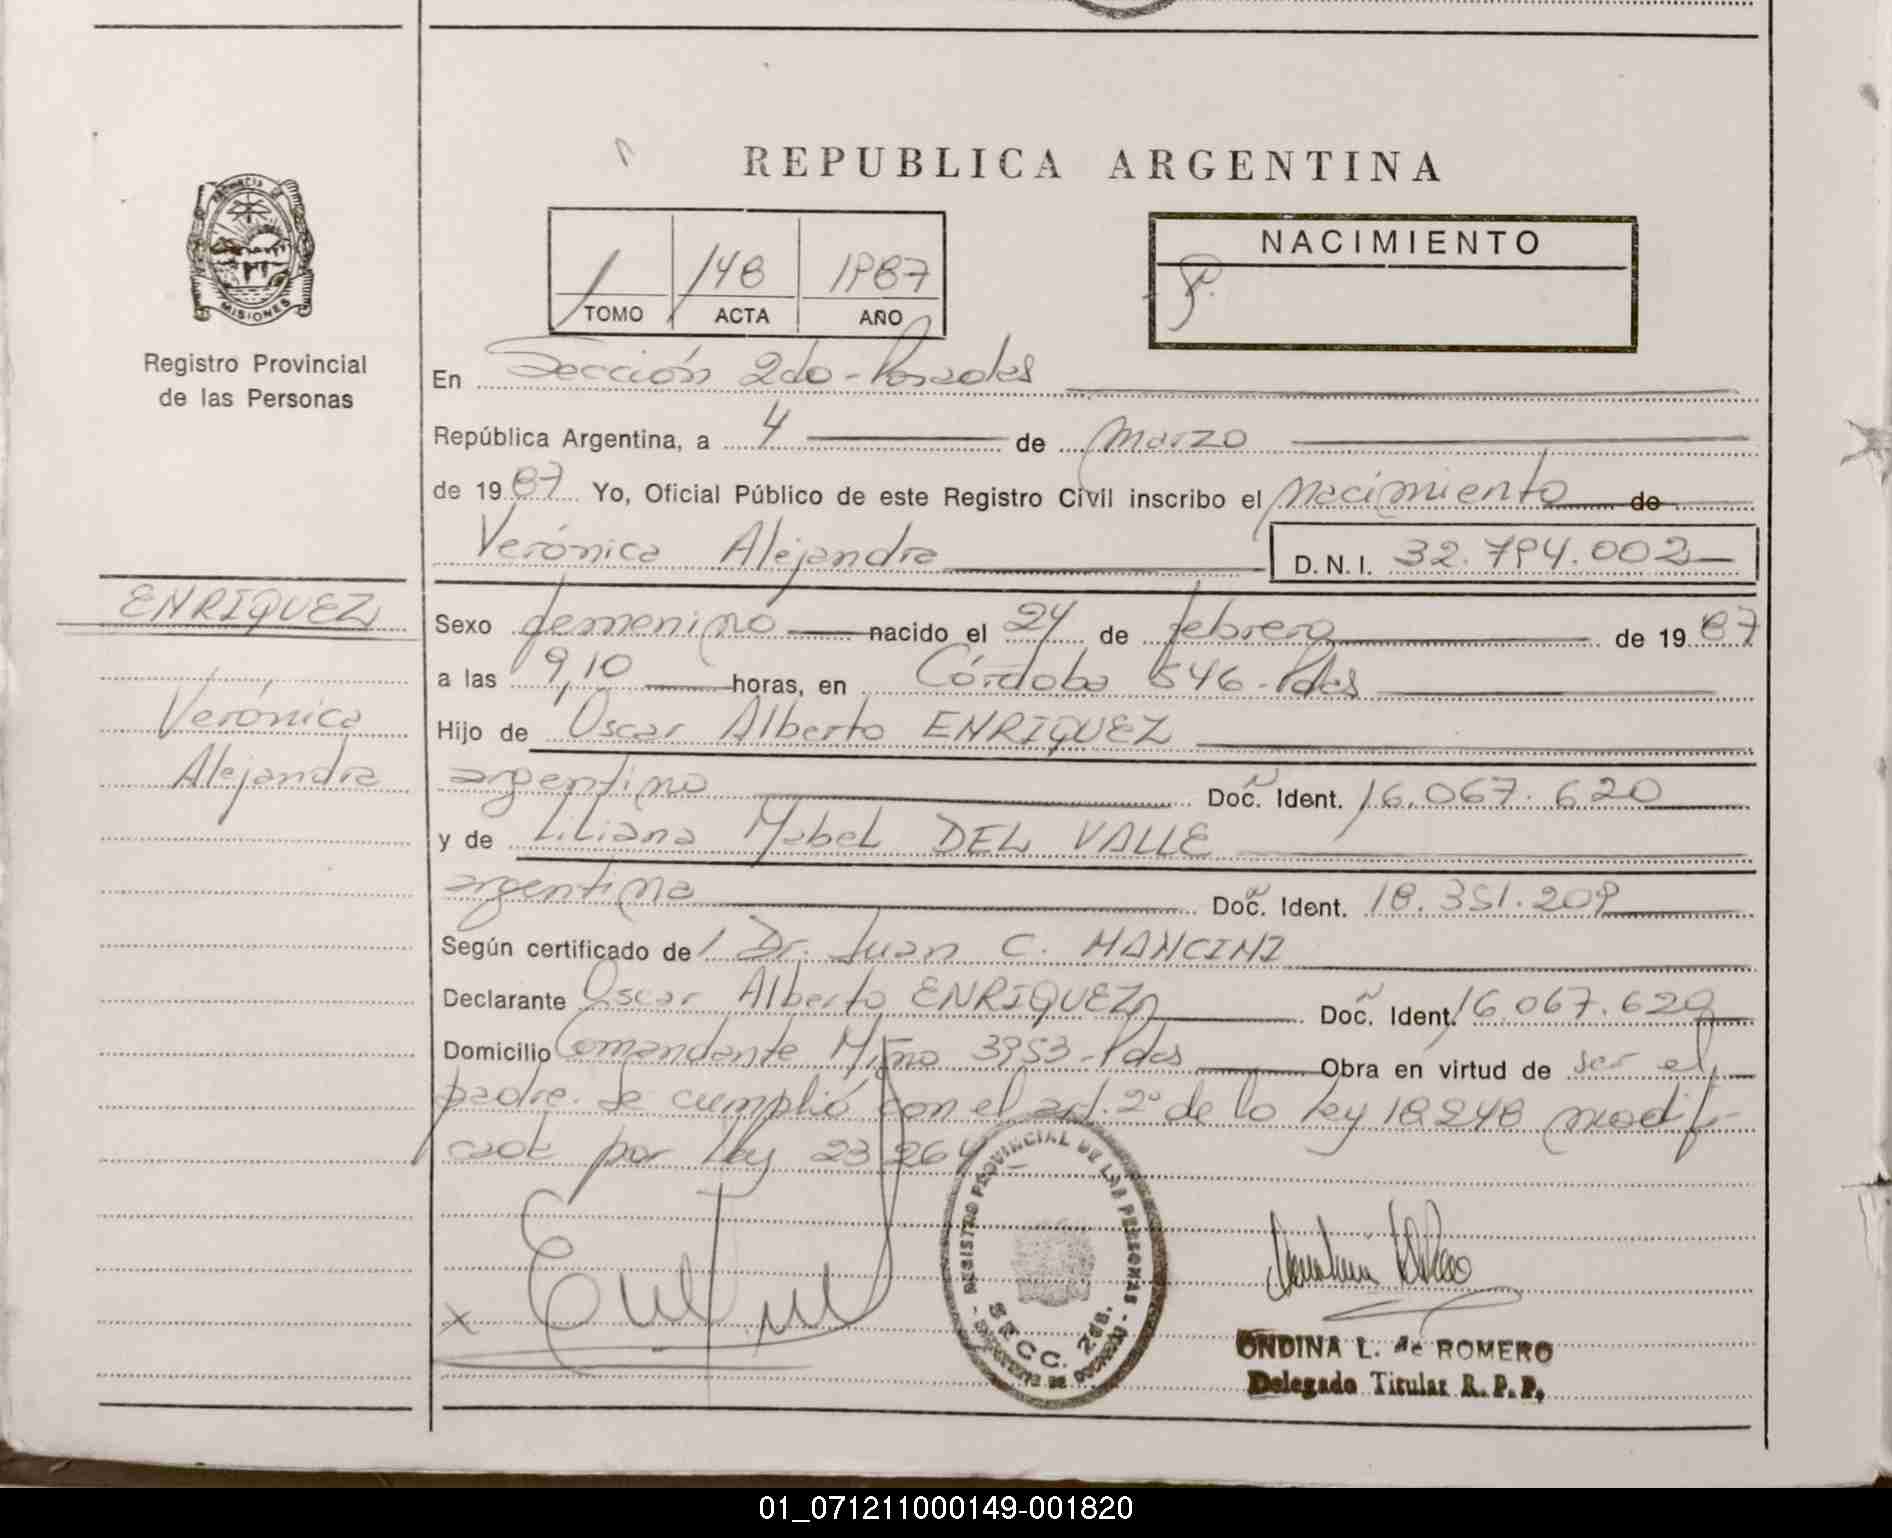 REPUBLICA ARGENTINA
PROVINCIA DE
MISIONES
Registro Provincial
de las Personas
1 148 1987
TOMO ACTA AÑO
NACIMIENTO
En Sección 2da - Posadas
República Argentina, a 4 de Marzo
de 1987 Yo, Oficial Público de este Registro Civil inscribo el Nacimiento de
Verónica Alejandra D.N.I. 32.794.002
ENRIQUEZ
Verónica
Alejandra
Sexo femenino nacido el 24 de febrero de 1987
a las 9,10 horas, en Córdoba 546 - Pdas
Hijo de Oscar Alberto ENRIQUEZ
argentino Doc. Ident. 16.067.620
y de Liliana Mabel DEL VALLE
argentina Doc. Ident. 18.351.209
Según certificado de/ Dr. Juan C. MANCINI
Declarante Oscar Alberto ENRIQUEZ Doc. Ident. 16.067.620
Domicilio Comandante Miño 3953 - Pdas Obra en virtud de ser el
padre. Se cumplió con el art. 2º de la ley 18248 modifi-
cado por ley 23264
REGISTRO PROVINCIAL DE LAS PERSONAS
SECC. 2da.
ONDINA L. de ROMERO
Delegado Titular R.P.P.
01_071211000149-001820